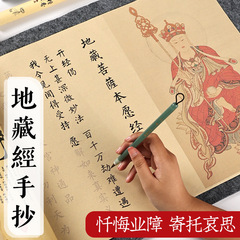 地藏經手抄
地藏菩萨本愿经
开经偈
无上甚深微妙法 百千万劫难遭遇
我今见闻得受持 愿
忏悔业障 寄托哀思